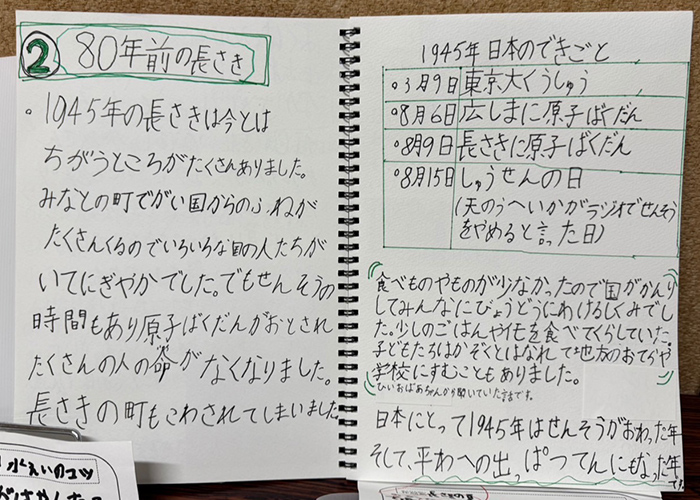 ② 80年前の長さき
・1945年の長さきは今とは
ちがうところがたくさんありました。
みなとの町でがい国からのふねが
たくさんくるのでいろいろな国の人たちが
いてにぎやかでした。でもせんそうの
時間もあり原子ばくだんがおとされ
たくさんの人の命がなくなりました。
長さきの町もこわされてしまいました
1945年日本のできごと
・3月9日 東京大くうしゅう
・8月6日 広しまに原子ばくだん
・8月9日 長さきに原子ばくだん
・8月15日 しゅうせんの日
(天のうへいかがラジオでせんそう
をやめると言った日)
食べものやものが少なかったので国がかんり
してみんなにびょうどうにわけるしくみでし
た。少しのごはんやイモを食べてくらしていた。
子どもたちはかぞくとはなれて地方のおてらや
学校にすむこともありました。
ひいおばあちゃんから聞いていた話です。
日本にとって1945年はせんそうがおわった年
そして、平わへの出っぱつてんにもなった年
です